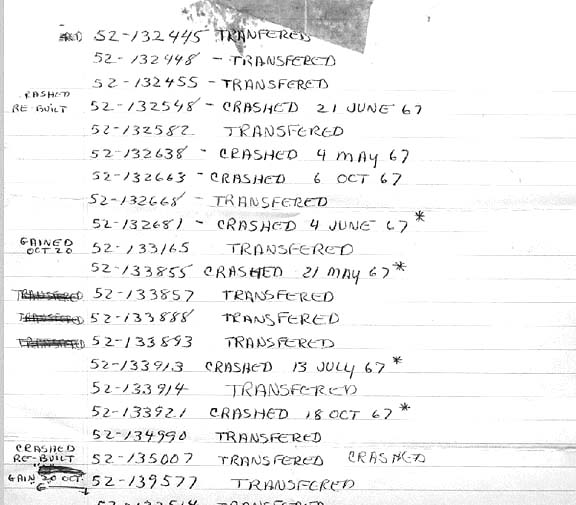 52-132445 TRANFERED
52-132448 - TRANSFERED
52-132455 - TRANSFERED
RASHED
RE-BUILT 52-132548 - CRASHED 21 JUNE 67
52-132582 TRANSFERED
52-132638 - CRASHED 4 MAY 67
52-132663 - CRASHED 6 OCT 67
52-132668 - TRANSFERED
52-132681 - CRASHED 4 JUNE 67*
GAINED
OCT 20 52-133165 TRANSFERED
52-133855 CRASHED 21 MAY 67*
TRANSFERED 52-133857 TRANSFERED
TRANSFERED 52-133888 TRANSFERED
TRANSFERED 52-133893 TRANSFERED
52-133913 CRASHED 13 JULY 67*
52-133914 TRANSFERED
52-133921 CRASHED 18 OCT 67*
52-134990 TRANSFERED
CRASHED
RE-BUILT 52-135007 TRANSFERED CRASHED
GAIN 20 OCT 52-139577 TRANSFERED